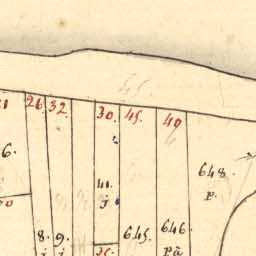 26. 32. 30. 45. 40
6.
648.
p.
41.
j
8. 9. 645. 646.
j j pä